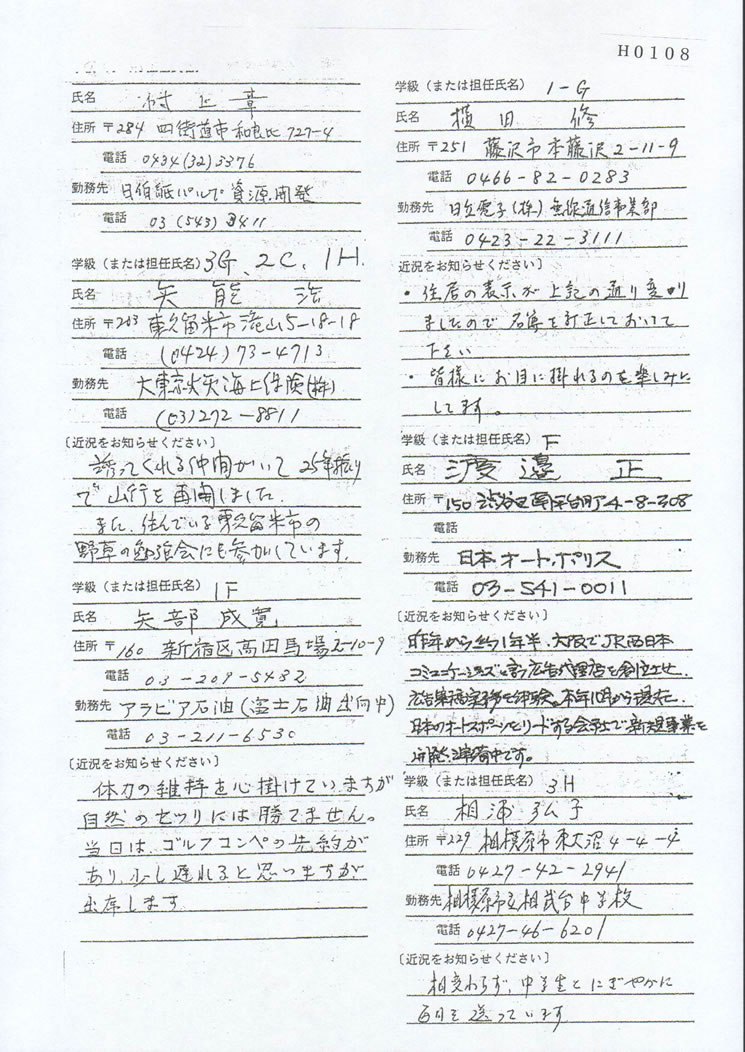 H0108
氏名 村上 章
住所 〒284 四街道市和良比727-4
電話 0434(32)3376
勤務先 日伯紙パルプ資源開発
電話 03(543)
学級(または担任氏名) 3G、2C、1H.
氏名 矢能 浩
住所 〒203 東久留米市滝山5-18-18
電話 (0424)73-4713
勤務先 大東京火災海上保険(株)
電話 (03)272-8811
〔近況をお知らせください〕
誘ってくれる仲間がいて 25年振り
で山行を再開しました.
また、住んでいる東久留米市の
野草の勉強会にも参加しています.
学級(または担任氏名) 1F
氏名 矢部 成寛
住所 〒160 新宿区高田馬場2-10-9
電話 03-209-5482
勤務先 アラビア石油(富士石油出向中)
電話 03-211-6530
〔近況をお知らせください〕
体力の維持を心掛けていますが
自然のセツリには勝てません。
当日は、ゴルフコンペの先約が
あり、少し遅れると思いますが
出席します
学級(または担任氏名) 1-G
氏名 横田 修
住所 〒251 藤沢市本藤沢2-11-9
電話 0466-82-0283
勤務先 日立電子(株)無線通信事業部
電話 0423-22-3111
近況をお知らせください〕
・住居の表示が上記の通り変り
ましたので 名簿を訂正しておいて
下さい
・皆様にお目に掛れるのを楽しみに
してます。
学級(または担任氏名) F
氏名 渡邊 正
住所 〒150 渋谷区南平台町4-8-308
電話
勤務先 日本オートポリス
電話 03-541-0011
〔近況をお知らせください〕
昨年から約1年半、大阪でJR西日本
コミュニケーションズと言う広告代理店を創立させ、
広告業務を体験。本年10月から復し、
日本のオートスポーツをリードする会社で新規事業を
開発準備中です。
学級(または担任氏名) 3H
氏名 相浦 弘子
住所 〒229 相模原市東大沼4-4-4
電話 0427-42-2941
勤務先 相模原市立相武台中学校
電話 0427-46-6201
〔近況をお知らせください〕
相変わらず、中学生とにぎやかに
毎日を送っています